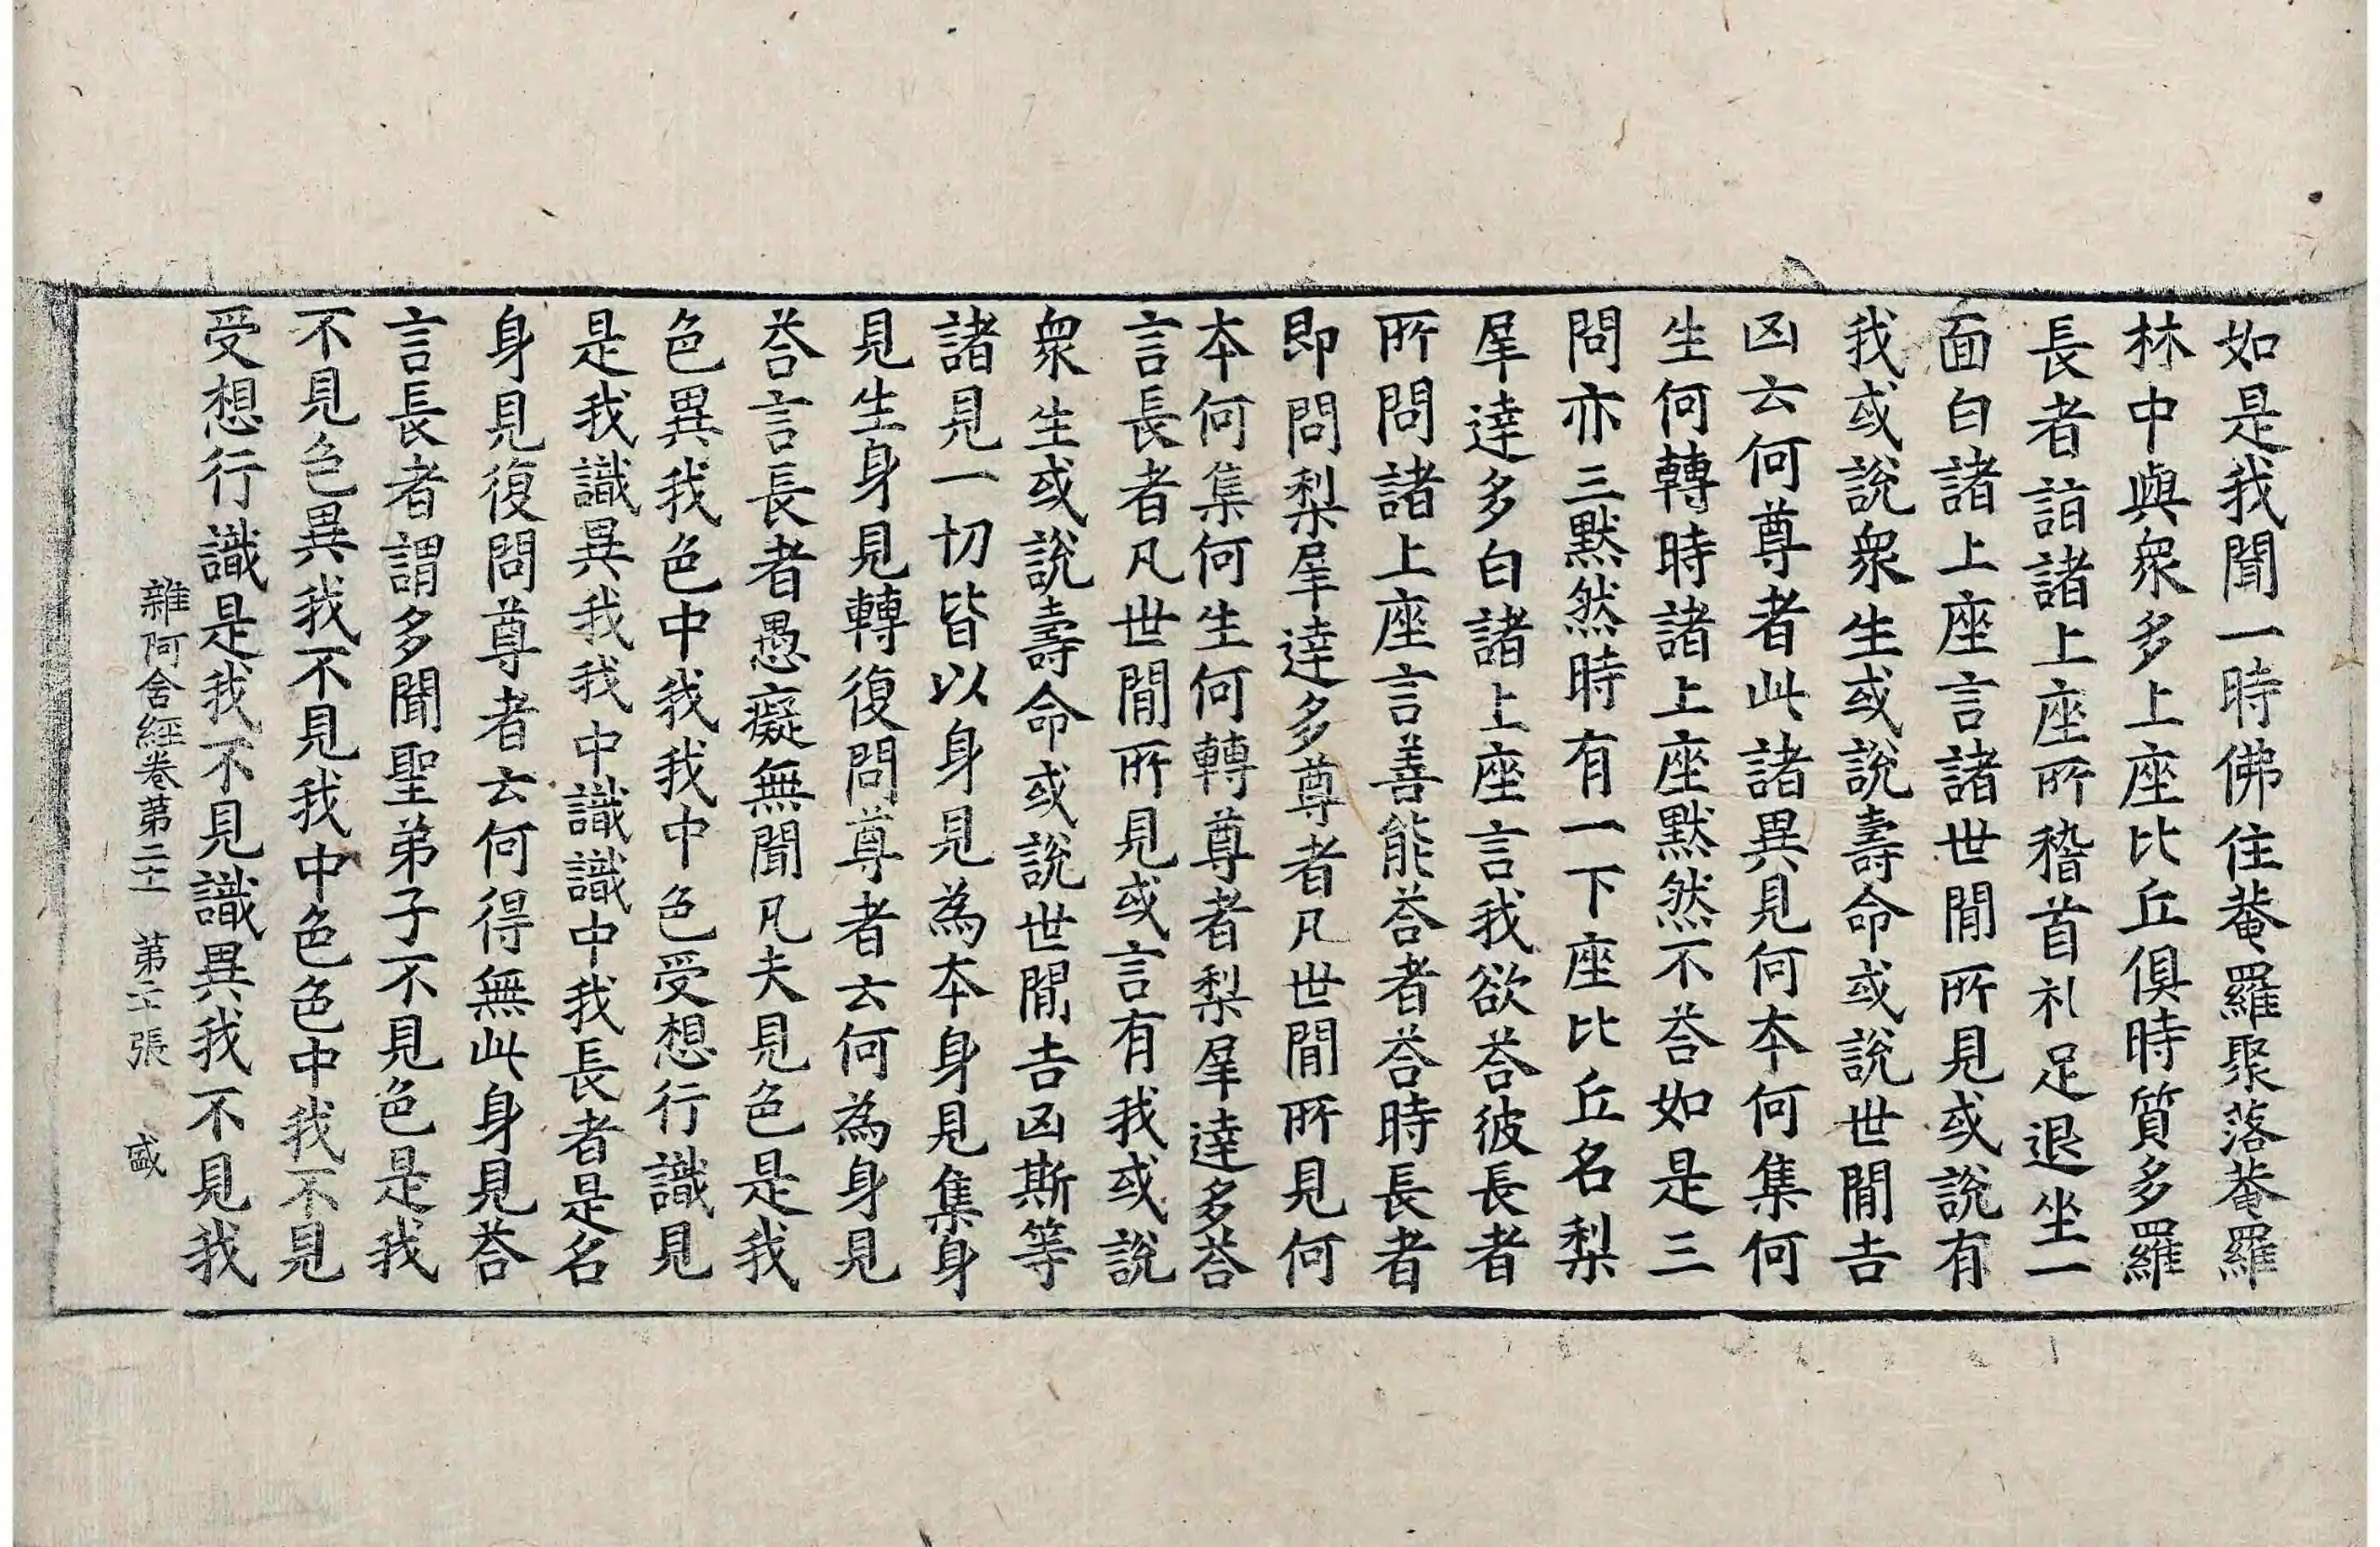 如是我聞一時佛住菴羅聚落菴羅
林中與衆多上座比丘俱時質多羅
長者詣諸上座所稽首礼足退坐一
面白諸上座言諸世間所見或說有
我或說衆生或說壽命或說世間吉
凶云何尊者此諸異見何本何集何
生何轉時諸上座默然不荅如是三
問亦三默然時有一下座比丘名梨
犀達多白諸上座言我欲荅彼長者
所問諸上座言善能荅者荅時長者
即問梨犀達多尊者凡世間所見何
本何集何生何轉尊者梨犀達多荅
言長者凡世間所見或言有我或說
衆生或說壽命或說世間吉凶斯等
諸見一切皆以身見為本身見集身
見生身見轉復問尊者云何為身見
荅言長者愚癡無聞凡夫見色是我
色異我色中我我中色受想行識見
是我識異我我中識識中我長者是名
身見復問尊者云何得無此身見荅
言長者謂多聞聖弟子不見色是我
不見色異我不見我中色色中我不見
受想行識是我不見識異我不見我
雜阿含經卷第二十一 第二十張 盛